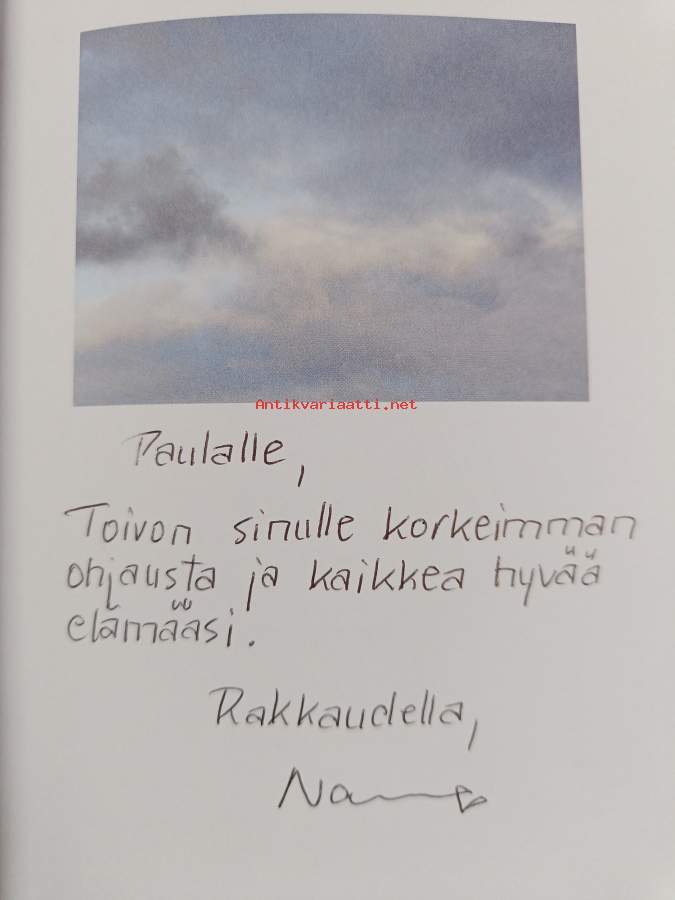 Antikvariaatti.net
Paulalle,
Toivon sinulle korkeimman
ohjausta ja kaikkea hyvää
elämääsi.
Rakkaudella,